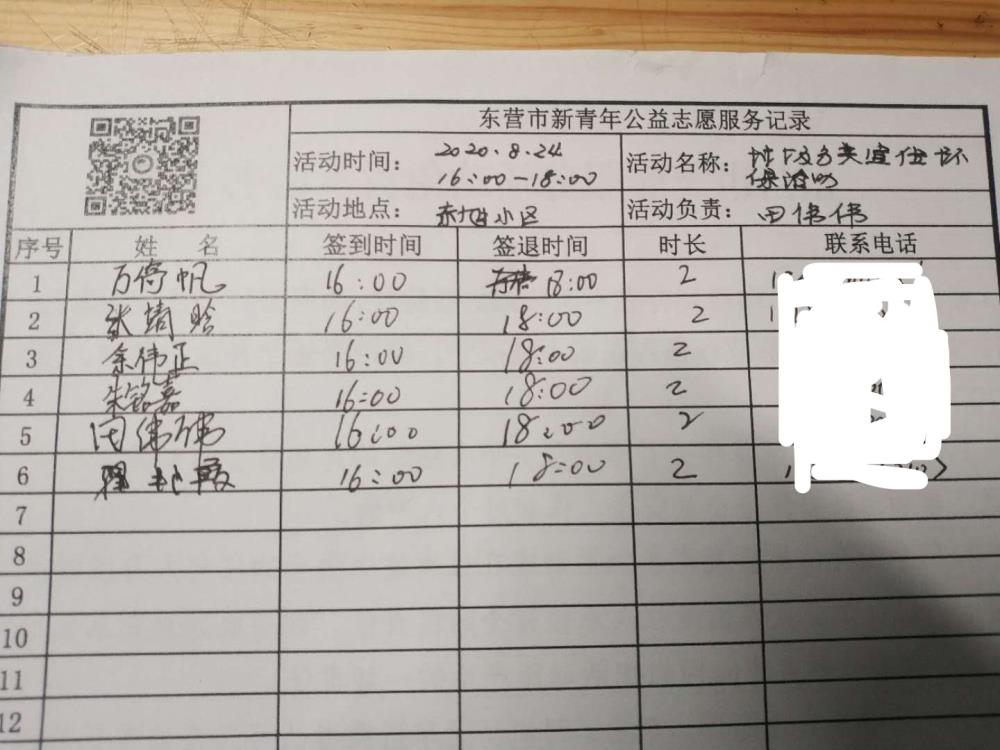 东营市新青年公益志愿服务记录
活动时间： 2020.8.24
16:00-18:00
活动名称：
活动地点： 小区
活动负责： 田伟伟
序号 姓 名 签到时间 签退时间 时长 联系电话
1 万停帆 16:00 18:00 2
2 张婧晗 16:00 18:00 2
3 余伟正 16:00 18:00 2
4 朱铭嘉 16:00 18:00 2
5 闫伟伟 16:00 18:00 2
6 16:00 18:00 2
7
8
9
10
11
12